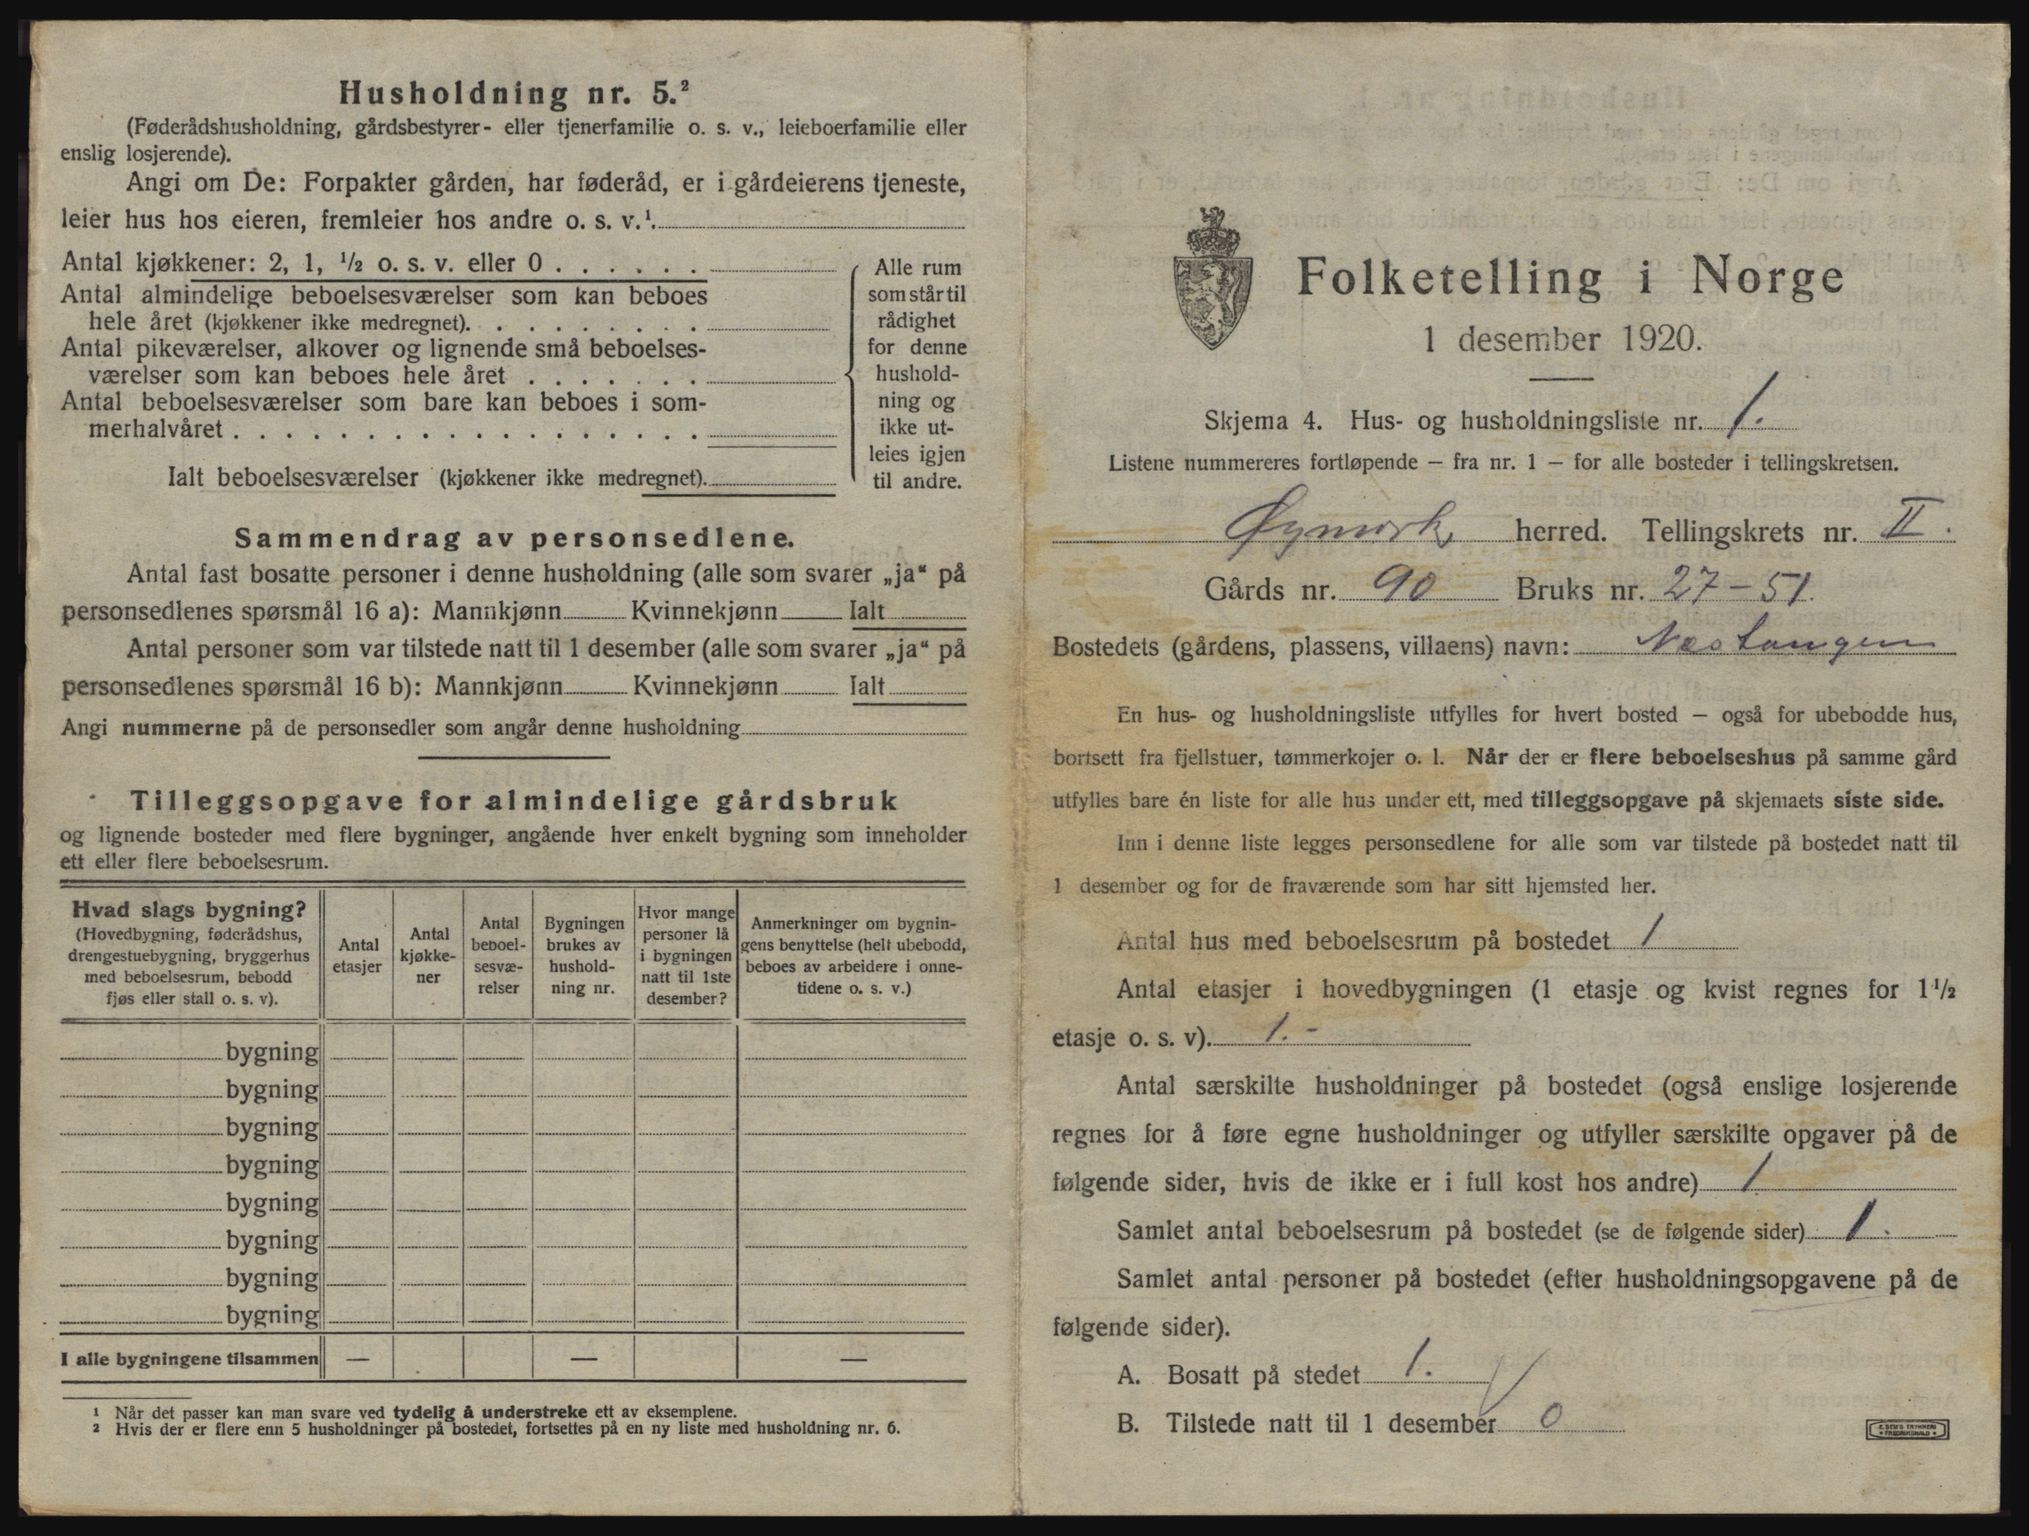 Husholdning nr. 5.²
(Føderådshusholdning, gårdsbestyrer- eller tjenerfamilie o. s. v., leieboerfamilie eller
enslig losjerende).
Angi om De: Forpakter gården, har føderåd, er i gårdeierens tjeneste,
leier hus hos eieren, fremleier hos andre o. s. v.¹.
Antal kjøkkener: 2, 1, ½ o. s. v. eller 0 . . . . . .
Antal almindelige beboelsesværelser som kan beboes
hele året (kjøkkener ikke medregnet). . . . . . . . .
Antal pikeværelser, alkover og lignende små beboelses-
værelser som kan beboes hele året . . . . . . .
Antal beboelsesværelser som bare kan beboes i som-
merhalvåret . . . . . . . . . . . . . . . . . .
Ialt beboelsesværelser (kjøkkener ikke medregnet).
Alle rum
som står til
rådighet
for denne
hushold-
ning og
ikke ut-
leies igjen
til andre.
Sammendrag av personsedlene.
Antal fast bosatte personer i denne husholdning (alle som svarer „ja“ på
personsedlenes spørsmål 16 a): Mannkjønn Kvinnekjønn Ialt
Antal personer som var tilstede natt til 1 desember (alle som svarer „ja“ på
personsedlenes spørsmål 16 b): Mannkjønn Kvinnekjønn Ialt
Angi nummerne på de personsedler som angår denne husholdning
Tilleggsopgave for almindelige gårdsbruk
og lignende bosteder med flere bygninger, angående hver enkelt bygning som inneholder
ett eller flere beboelsesrum.
Hvad slags bygning?
(Hovedbygning, føderådshus,
drengestuebygning, bryggerhus
med beboelsesrum, bebodd
fjøs eller stall o. s. v).
Antal
etasjer
Antal
kjøkke-
ner
Antal
beboel-
sesvæ-
relser
Bygningen
brukes av
hushold-
ning nr.
Hvor mange
personer lå
i bygningen
natt til 1ste
desember?
Anmerkninger om bygnin-
gens benyttelse (helt ubebodd,
beboes av arbeidere i onne-
tidene o. s. v.)
bygning
bygning
bygning
bygning
bygning
bygning
bygning
bygning
I alle bygningene tilsammen — — —
¹ Når det passer kan man svare ved tydelig å understreke ett av eksemplene.
² Hvis der er flere enn 5 husholdninger på bostedet, fortsettes på en ny liste med husholdning nr. 6.
Folketelling i Norge
1 desember 1920.
Skjema 4. Hus- og husholdningsliste nr. 1.
Listene nummereres fortløpende — fra nr. 1 — for alle bosteder i tellingskretsen.
Øymark herred. Tellingskrets nr. II.
Gårds nr. 90 Bruks nr. 27-51.
Bostedets (gårdens, plassens, villaens) navn: Næstangen
En hus- og husholdningsliste utfylles for hvert bosted — også for ubebodde hus,
bortsett fra fjellstuer, tømmerkojer o. l. Når der er flere beboelseshus på samme gård
utfylles bare én liste for alle hus under ett, med tilleggsopgave på skjemaets siste side.
Inn i denne liste legges personsedlene for alle som var tilstede på bostedet natt til
1 desember og for de fraværende som har sitt hjemsted her.
Antal hus med beboelsesrum på bostedet 1
Antal etasjer i hovedbygningen (1 etasje og kvist regnes for 1½
etasje o. s. v). 1.-
Antal særskilte husholdninger på bostedet (også enslige losjerende
regnes for å føre egne husholdninger og utfyller særskilte opgaver på de
følgende sider, hvis de ikke er i full kost hos andre) 1
Samlet antal beboelsesrum på bostedet (se de følgende sider) 1.
Samlet antal personer på bostedet (efter husholdningsopgavene på de
følgende sider).
A. Bosatt på stedet 1.
B. Tilstede natt til 1 desember 0